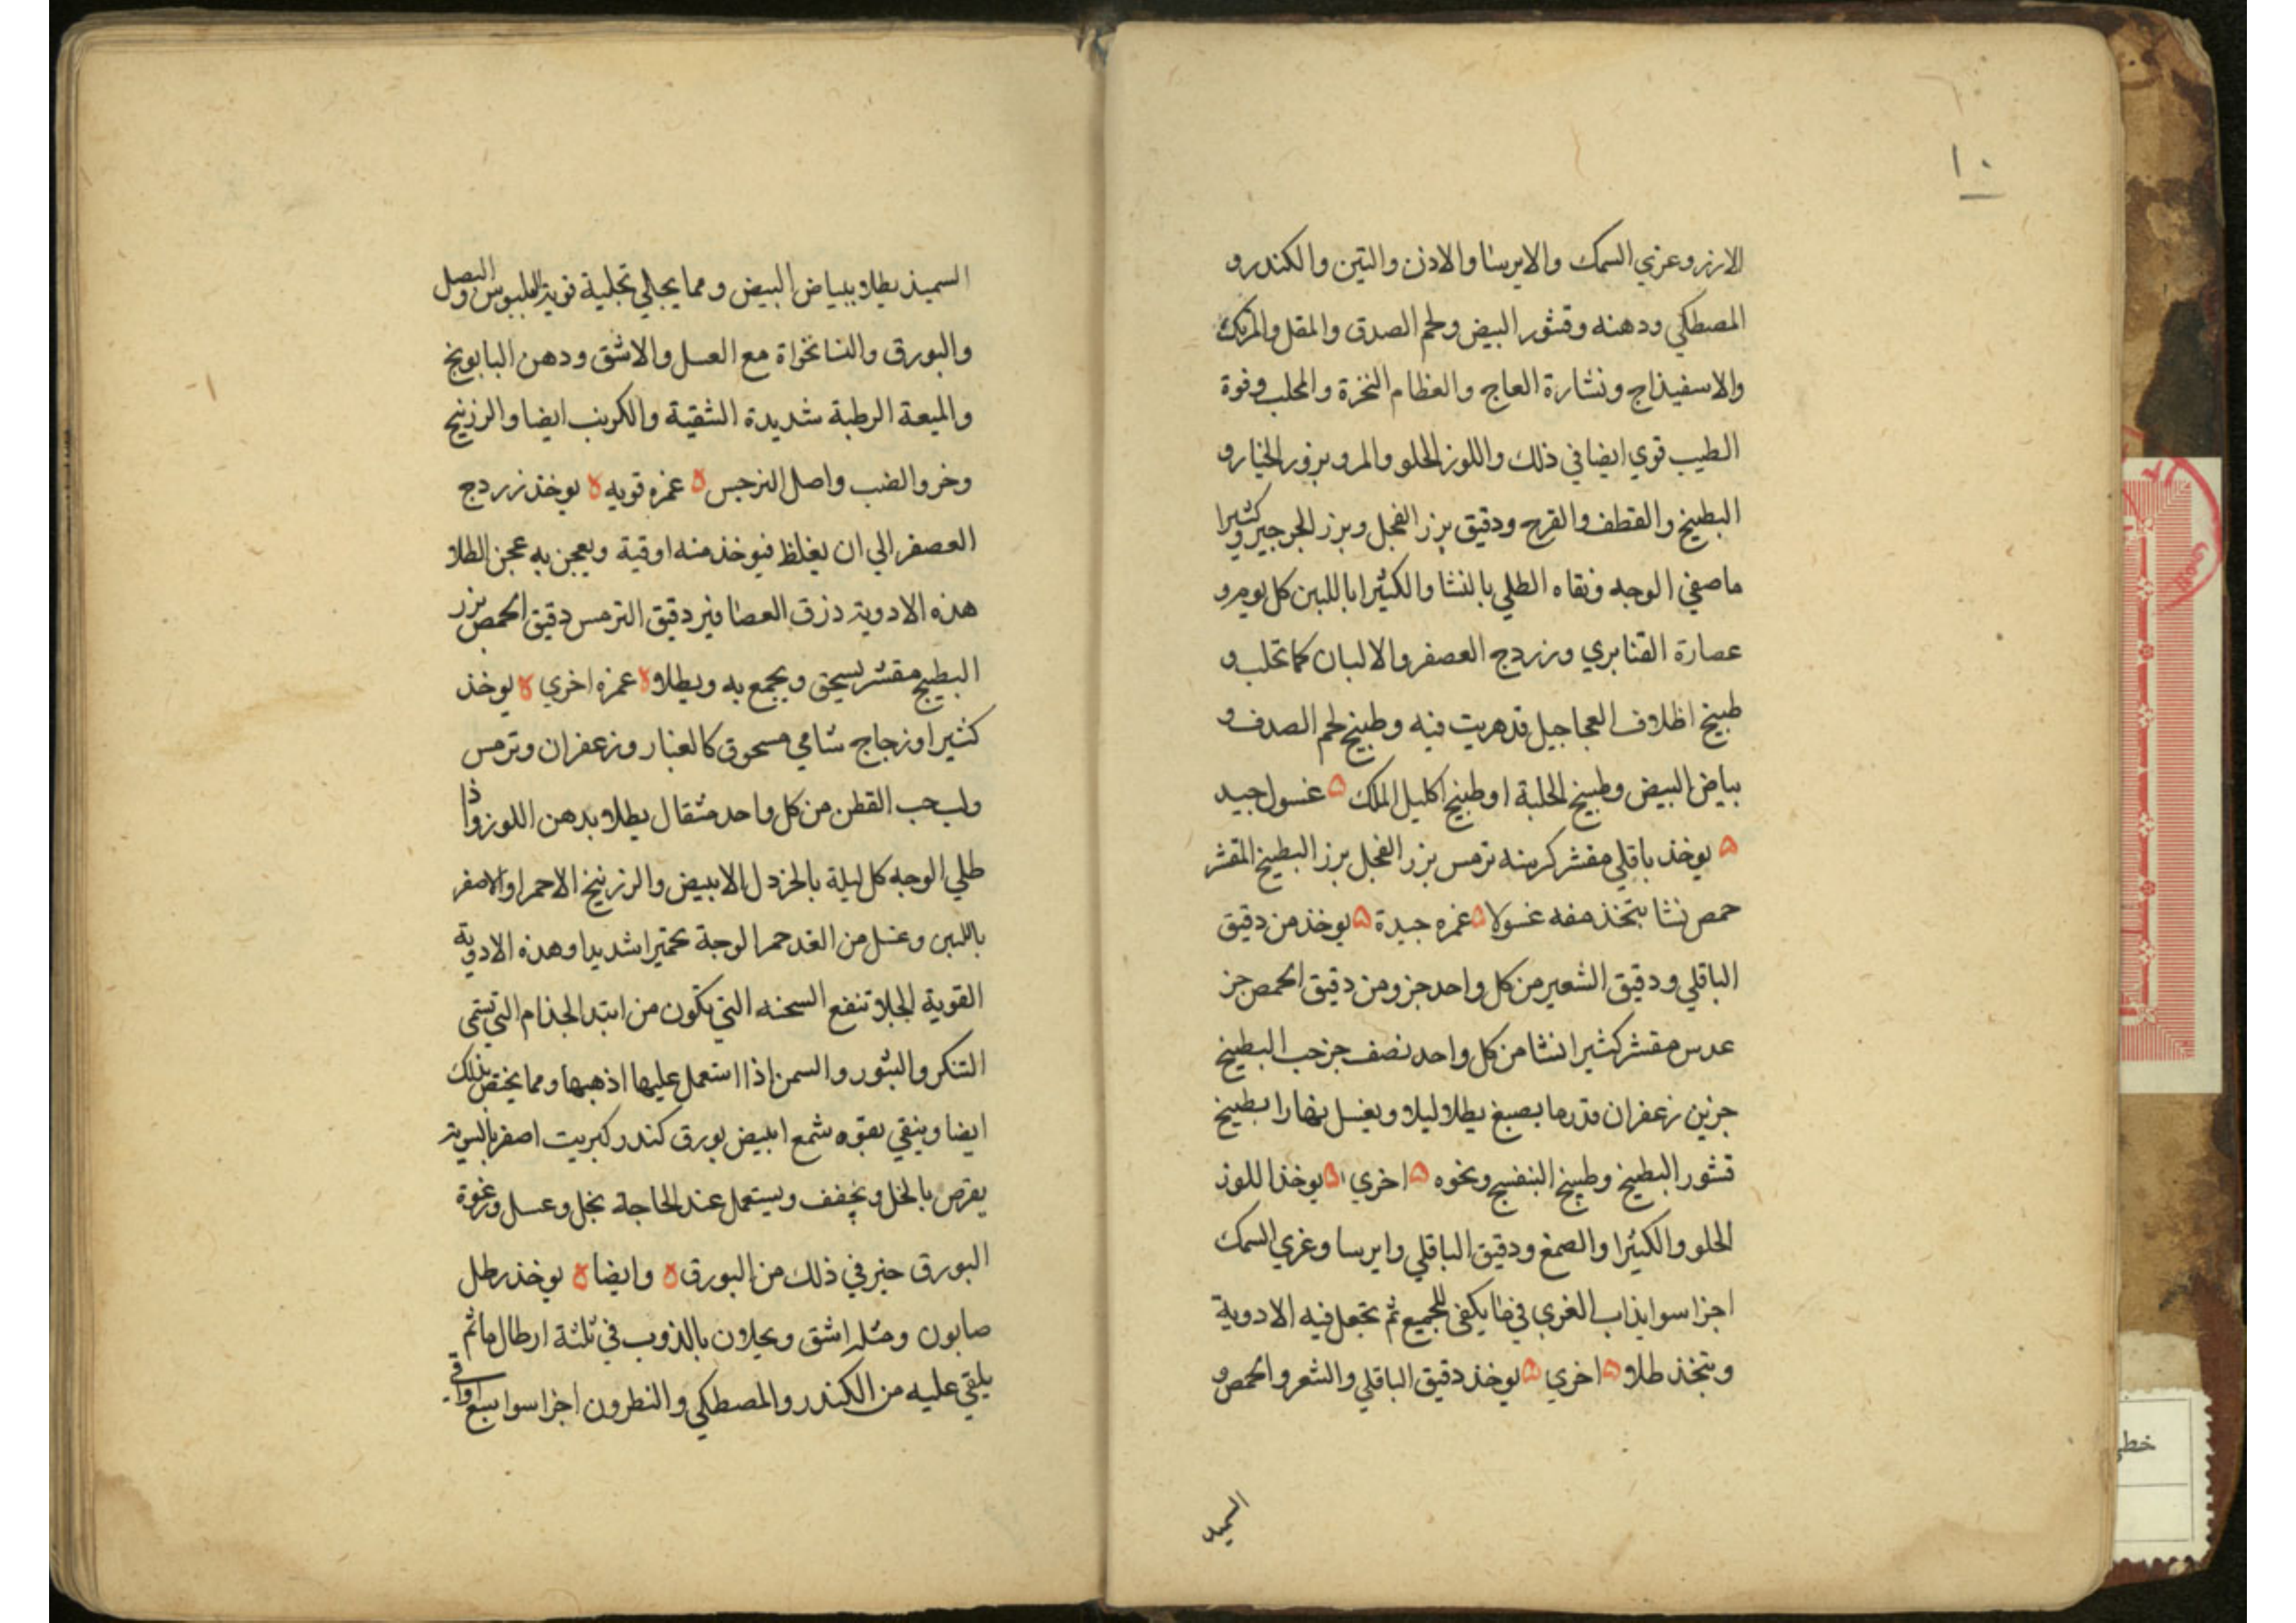 ١٠
الارز وغري السمك والايرسا والاذن والتين والكندر و
المصطكي ودهنه وقشور البيض ولحم الصدق والمقل والمرتك
والاسفيذاج ونشارة العاج والعظام النخزة والمحلب وفوة
الطيب قوي ايضا في ذلك واللوز الحلو والمر وبزور الخيار و
البطيخ والقطف والقرح ودقيق بزر الفجل وبزر الجرجير وكثيرا
ما صفي الوجه ونقاه الطلي بالنشا والكثيرا باللبن كل يوم و
عصارة القنابري وزردج العصفر والالبان كما تحلب و
طبيخ اظلاف العجاجيل قد هريت فيه وطبيخ لحم الصدف و
بياض البيض وطبيخ الحلبة او طبيخ اكليل الملك ه غسول جيد
ه يوخذ باقلي مقشر كرسنه ترمس بزر الفجل بزر البطيخ المقشر
حمص نشا يتخذ منه غسولا ه غمره جيدة ه يوخذ من دقيق
الباقلي ودقيق الشعير من كل واحد جزو من دقيق الحمص جز
عدس مقشر كثيرا نشا من كل واحد نصف جز حب البطيخ
جزين زعفران قدر ما يصبغ يطلا ليلا ويغسل نهارا بطبيخ
قشور البطيخ وطبيخ البنفسج ونحوه ه اخري ه يوخذ اللوز
الحلو والكثيرا والصمغ ودقيق الباقلي وايرسا وغري السمك
اجزا سوا يذاب الغري في ما يكفي للجميع ثم تجعل فيه الادوية
ويتخذ طلا ه اخري ه يوخذ دقيق الباقلي والشعر والحمص و
السميد
السميذ يطلا ببياض البيض ومما يجلي تجلية قوية البلبوس والبصل
والبورق والنانخواة مع العسل والاشق ودهن البابونج
والميعة الرطبة شديدة التنقية والكرنب ايضا والزرنيخ
وخرو الضب واصل النرجس ه غمره قويه ه يوخذ زردج
العصفر الي ان يغلظ فيوخذ منه اوقية ويعجن به عجن الطلا
هذه الادوية ذرق العصافير دقيق الترمس دقيق الحمص بزر
البطيخ مقشر يسحق ويجمع به ويطلا ه غمره اخري ه يوخذ
كثيرا وزجاج شامي مسحوق كالغبار وزعفران وترمس
ولب حب القطن من كل واحد مثقال يطلا بدهن اللوز واذا
طلي الوجه كل ليلة بالخردل الابيض والزرنيخ الاحمر او الاصفر
باللبن وغسل من الغد حمر الوجة تحميرا شديدا وهذه الادوية
القوية الجلا تنفع السحنه التي تكون من ابتدا الجذام التي تسمى
التنكر والبثور والسمن اذا استعمل عليها اذهبها ومما يختص بذلك
ايضا وينقي بقوه شمع ابيض بورق كندر كبريت اصفر بالسوية
يقرص بالخل ويجفف ويستعمل عند الحاجة بخل وعسل ورغوة
البورق خير في ذلك من البورق ه وايضا ه يوخذ رطل
صابون ومثله اشق ويحلان بالذوب في ثلثة ارطال ما ثم
يلقي عليه من الكندر والمصطكي والنطرون اجزا سوا سبع اواقي